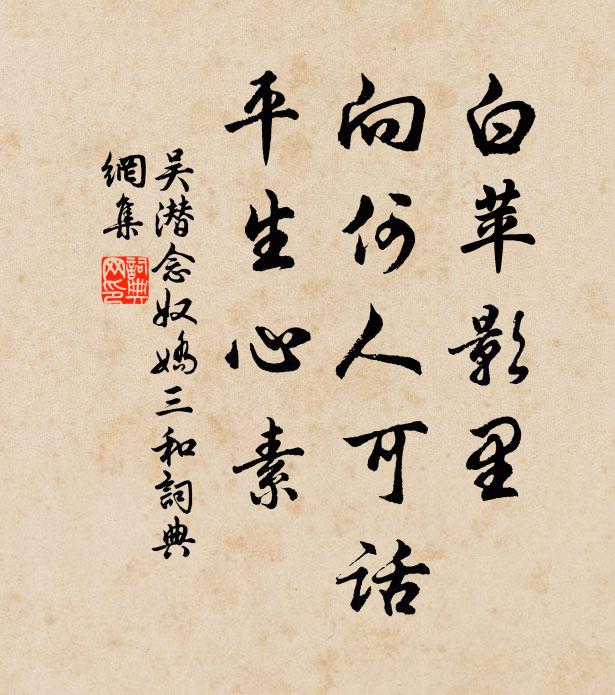 白苹影里
向何人可话
平生心素
吴潜念奴娇三和詞典
網集
詞典
网印